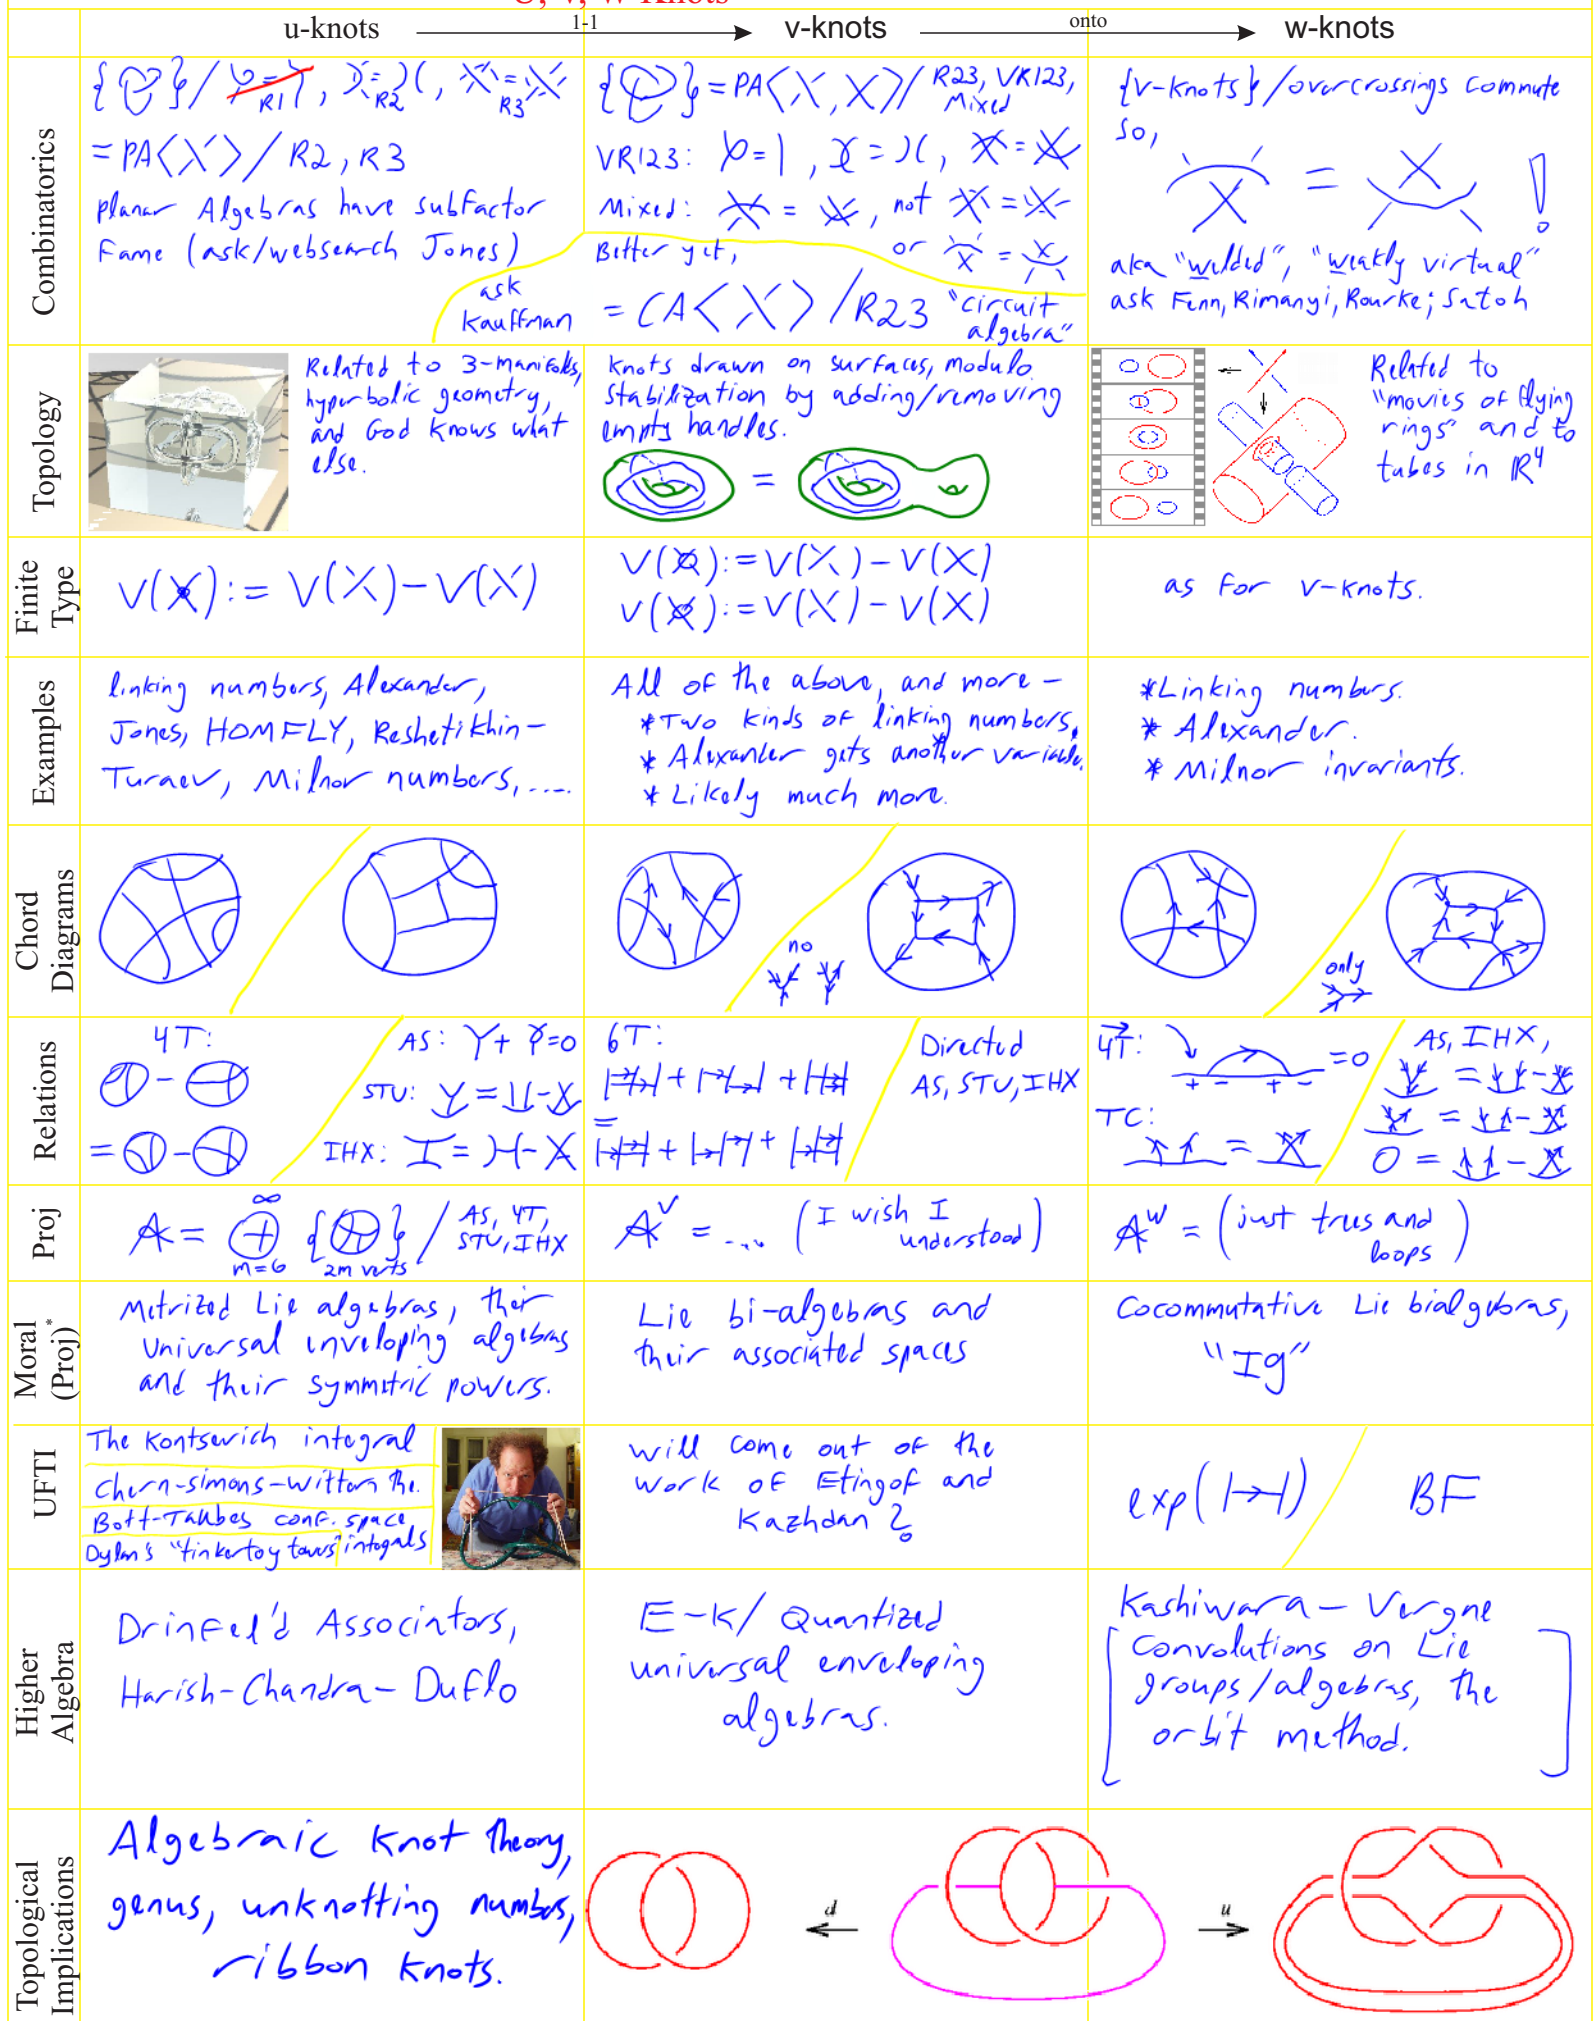 U, V, W-Knots
u-knots 1-1 v-knots onto w-knots
Combinatorics
R1
R2
R3
= PA / R2, R3
planar Algebras have subfactor
Fame (ask/websearch Jones)
ask
Kauffman
= PA / R23, VR123,
Mixed
VR123:
Mixed: , not
Better yet, or
= CA / R23 "circuit
algebra"
{v-knots} / overcrossings commute
so,
= !
aka "welded", "weakly virtual"
ask Fenn, Rimanyi, Rourke; Satoh
Topology
Related to 3-manifolds,
hyperbolic geometry,
and God knows what
else.
knots drawn on surfaces, modulo
stabilization by adding/removing
empty handles.
=
Related to
"movies of flying
rings" and to
tubes in ℝ⁴
Finite
Type
V( ) := V( ) - V( )
V( ) := V( ) - V( )
V( ) := V( ) - V( )
as for v-knots.
Examples
linking numbers, Alexander,
Jones, HOMFLY, Reshetikhin-
Turaev, Milnor numbers, ....
All of the above, and more -
* Two kinds of linking numbers,
* Alexander gets another variable.
* Likely much more.
* Linking numbers.
* Alexander.
* Milnor invariants.
Chord
Diagrams
no
only
Relations
4T:
AS: Y + = 0
STU:
IHX: I = H - X
6T:
Directed
AS, STU, IHX
4T: = 0
+ - + -
TC:
AS, IHX,
0 =
Proj
A = ⊕ { } / AS, 4T,
STU, IHX
∞
m=0 2m verts
Aᵛ = .... (I wish I
understood)
Aʷ = (just trees and
loops)
Moral
(Proj)*
Metrized Lie algebras, their
Universal inveloping algebras
and their symmetric powers.
Lie bi-algebras and
their associated spaces
Cocommutative Lie bialgebras,
"Ig"
UFTI
The Kontsevich integral
Chern-Simons-Witten the.
Bott-Taubes conf. space
Dylan's "tinkertoy towers" integrals
will come out of the
work of Etingof and
Kazhdan?
exp( )
BF
Higher
Algebra
Drinfel'd Associators,
Harish-Chandra-Duflo
E-K/ Quantized
universal enveloping
algebras.
Kashiwara - Vergne
[convolutions on Lie
groups/algebras, the
orbit method.]
Topological
Implications
Algebraic Knot Theory,
genus, unknotting numbers,
ribbon knots.
d
u